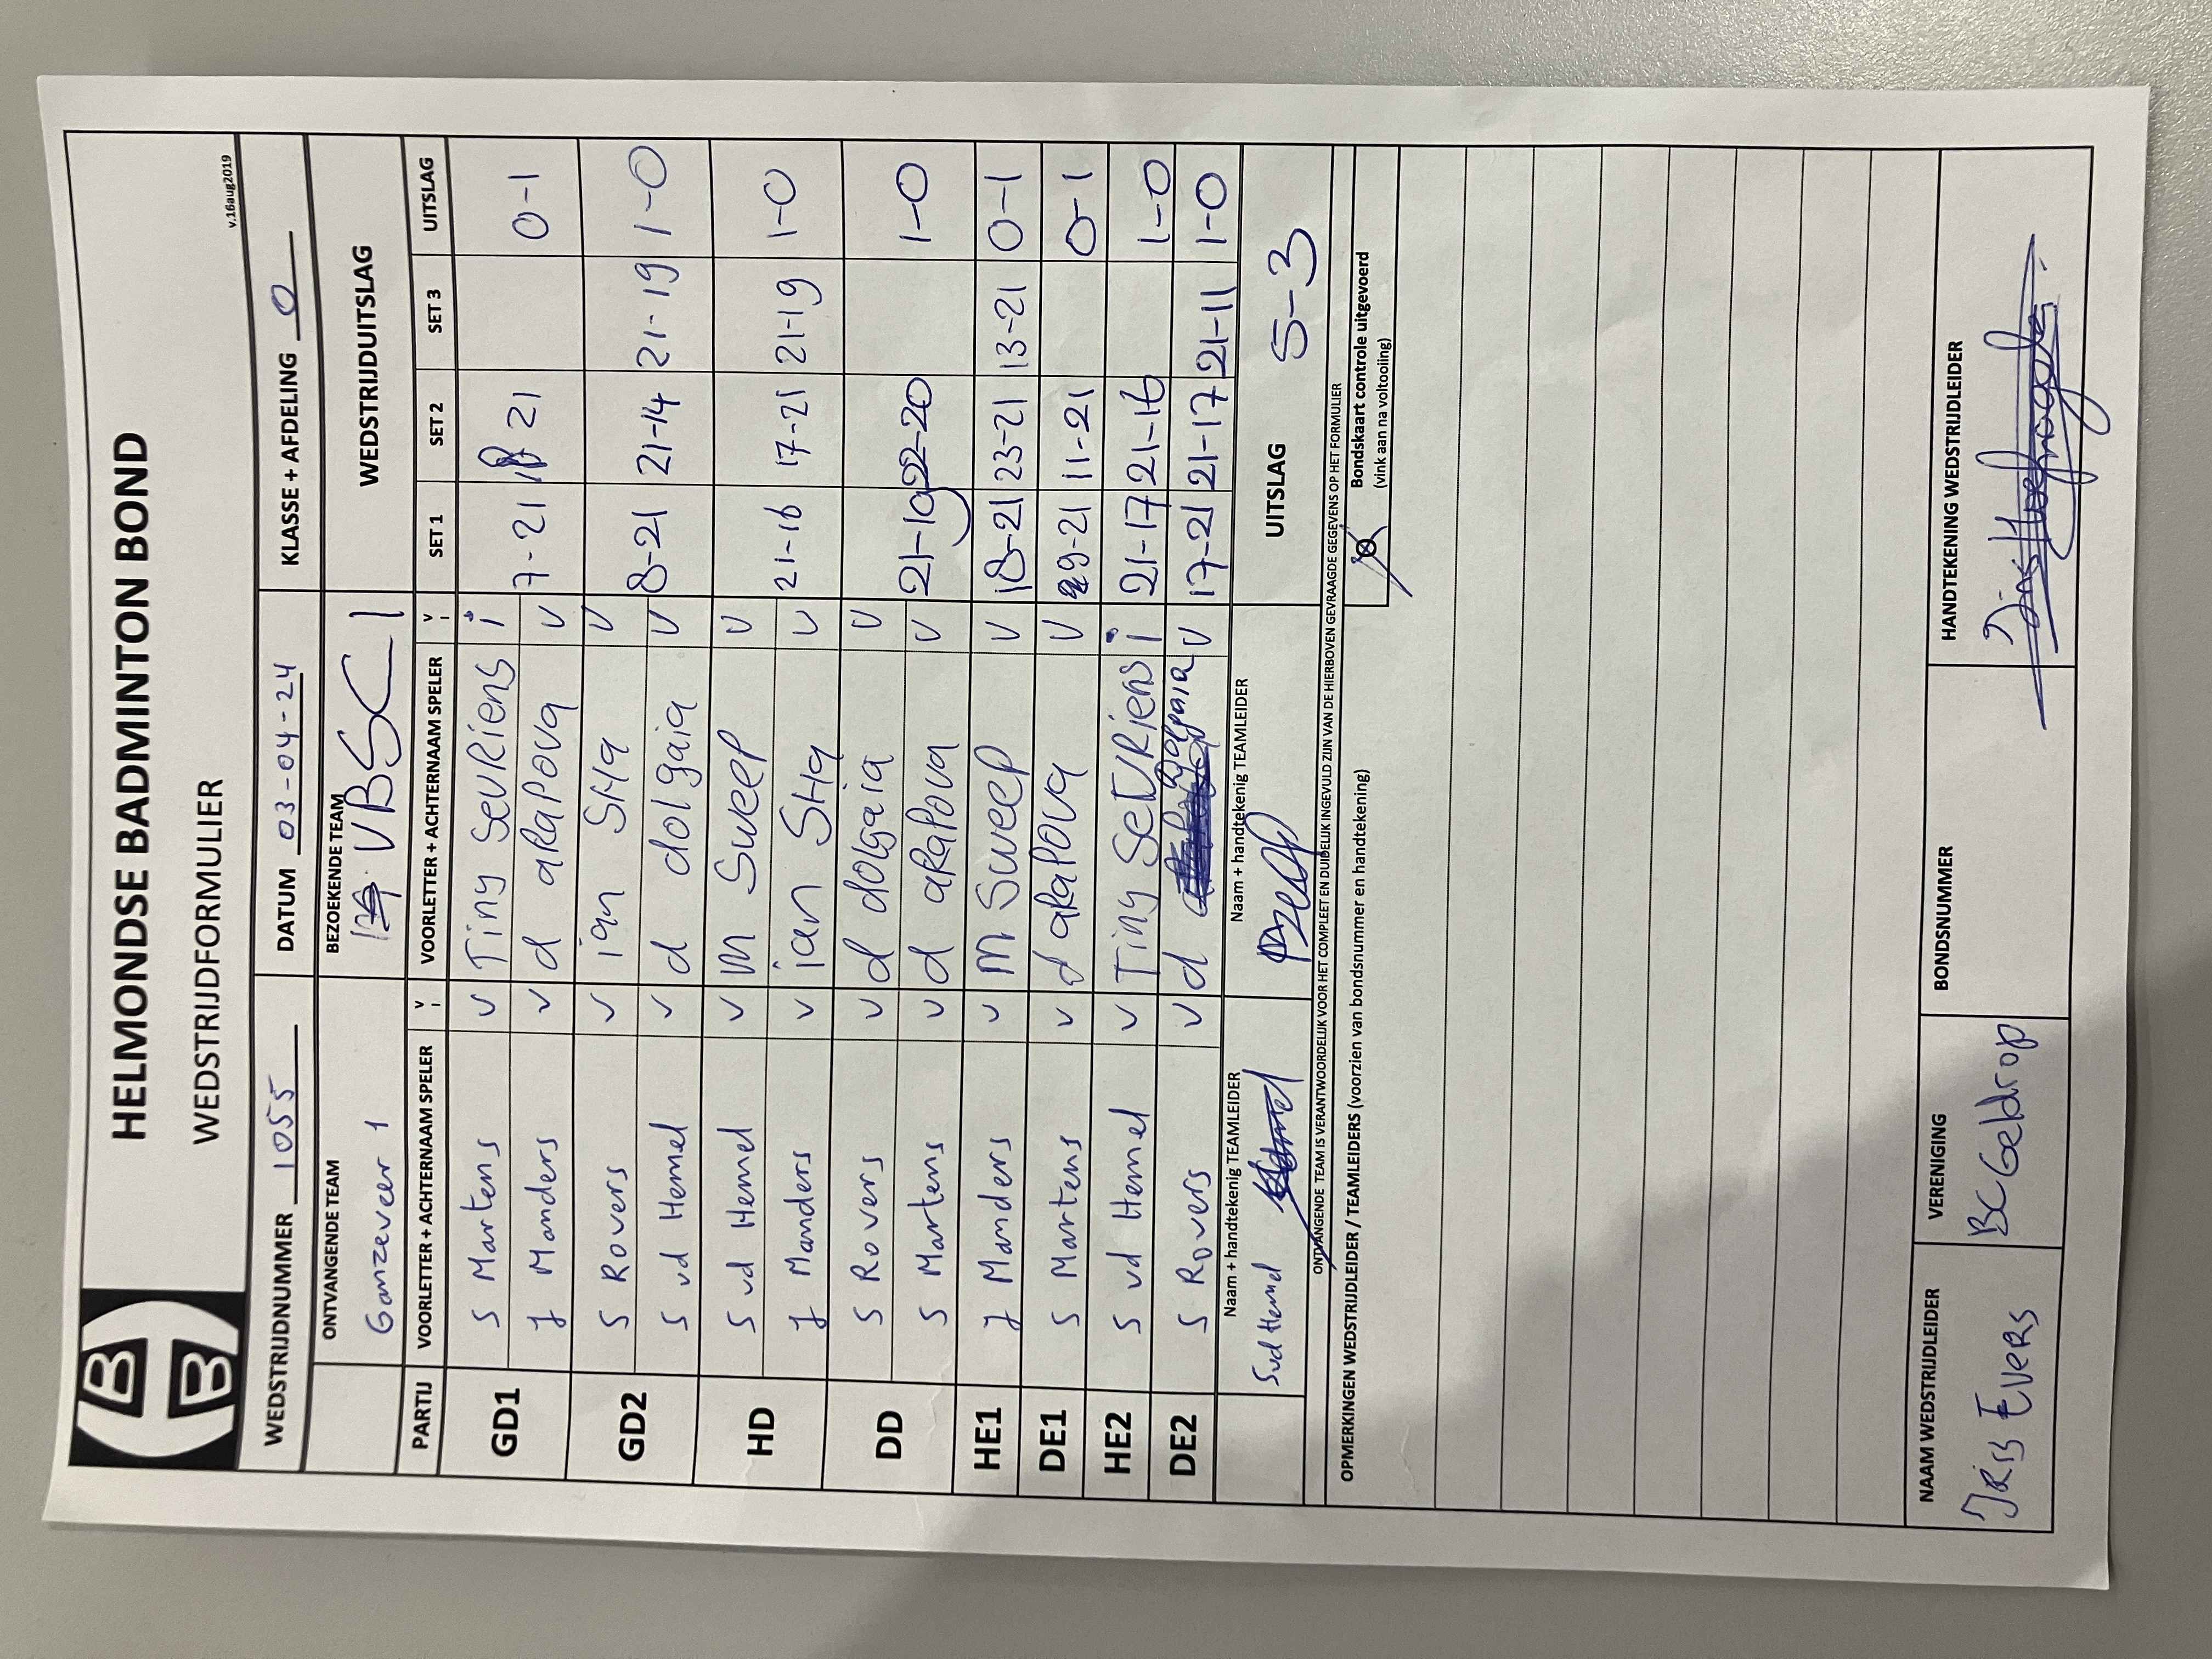 HELMONDSE BADMINTON BOND
WEDSTRIJDFORMULIER
v.16aug2019
WEDSTRIJDNUMMER 1055 DATUM 03-04-24 KLASSE + AFDELING 0
ONTVANGENDE TEAM BEZOEKENDE TEAM WEDSTRIJDUITSLAG
Ganzeveer 1 VBSC 1
PARTIJ VOORLETTER + ACHTERNAAM SPELER V I VOORLETTER + ACHTERNAAM SPELER V I SET 1 SET 2 SET 3 UITSLAG
GD1 S Martens v Tiny SevRiens i
J Manders v d aRaPova v 7-21 21 0-1
GD2 S Rovers v ian SHa v
S vd Hemel v d dolgaia v 8-21 21-14 21-19 1-0
HD S vd Hemel v M Sweep v
J Manders v ian SHa v 21-16 17-21 21-19 1-0
DD S Rovers v d dolgaia v
S Martens v d aRaPova v 21-19 22-20 1-0
HE1 J Manders v M Sweep v 18-21 23-21 13-21 0-1
DE1 S Martens v d aRaPova v 9-21 11-21 0-1
HE2 S vd Hemel v Tiny SeVRiens i 21-17 21-16 1-0
DE2 S Rovers v d v 17-21 21-17 21-11 1-0
Naam + handtekenig TEAMLEIDER Naam + handtekenig TEAMLEIDER
S vd Hemel UITSLAG 5-3
ONTVANGENDE TEAM IS VERANTWOORDELIJK VOOR HET COMPLEET EN DUIDELIJK INGEVULD ZIJN VAN DE HIERBOVEN GEVRAAGDE GEGEVENS OP HET FORMULIER
OPMERKINGEN WEDSTRIJDLEIDER / TEAMLEIDERS (voorzien van bondsnummer en handtekening)
Bondskaart controle uitgevoerd
(vink aan na voltooiing)
NAAM WEDSTRIJDLEIDER VERENIGING BONDSNUMMER HANDTEKENING WEDSTRIJDLEIDER
IRiS EVERS BC Geldrop